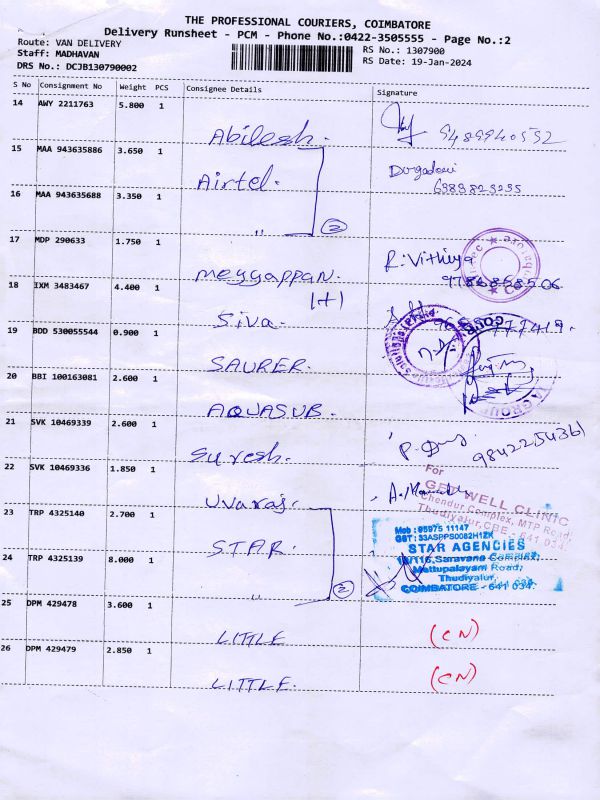 THE PROFESSIONAL COURIERS, COIMBATORE
Delivery Runsheet - PCM - Phone No.:0422-3505555 - Page No.:2
Route: VAN DELIVERY
RS No.: 1307900
Staff: MADHAVAN
RS Date: 19-Jan-2024
DRS No.: DCJB130790002
S No Consignment No Weight PCS Consignee Details Signature
14 AWY 2211763 5.800 1
Abilesh. 9489940552
15 MAA 943635886 3.650 1
Airtel.
16 MAA 943635688 3.350 1
" 2
17 MDP 290633 1.750 1
Meyyappan. R. Vithiya
18 IXM 3483467 4.400 1
(+)
Siva.
19 BDD 530055544 0.900 1
SAURER.
20 BBI 100163081 2.600 1
AQUASUB.
GROUP
21 SVK 10469339 2.600 1
Suresh. 9842254361
22 SVK 10469336 1.850 1
Uvaraj.
For
GET WELL CLINIC
Chendur Complex, MTP Road,
Thudiyalur, CBE - 641 034.
23 TRP 4325140 2.700 1
S.T.A.R.
Mob : 95975 11147
GST : 33ASPPS0082H1ZK
STAR AGENCIES
Saravana Complex,
Mettupalayam Road,
Thudiyalur,
COIMBATORE - 641 034.
24 TRP 4325139 8.000 1
" 2
25 DPM 429478 3.600 1
LITTLE (CN)
26 DPM 429479 2.850 1
LITTLE. (CN)